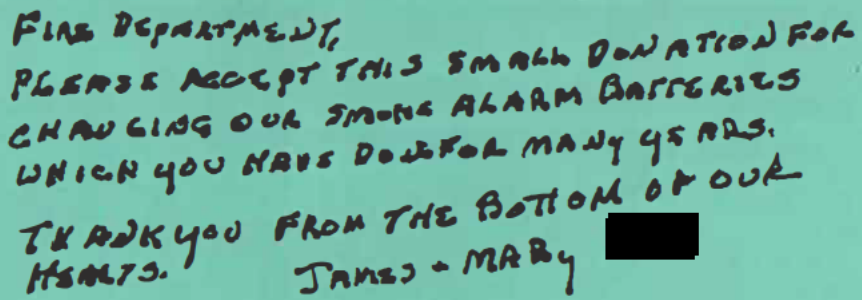 FIRE DEPARTMENT,
PLEASE ACCEPT THIS SMALL DONATION FOR
CHANGING OUR SMOKE ALARM BATTERIES
WHICH YOU HAVE DONE FOR MANY YEARS.
THANK YOU FROM THE BOTTOM OF OUR
HEARTS. JAMES + MARY